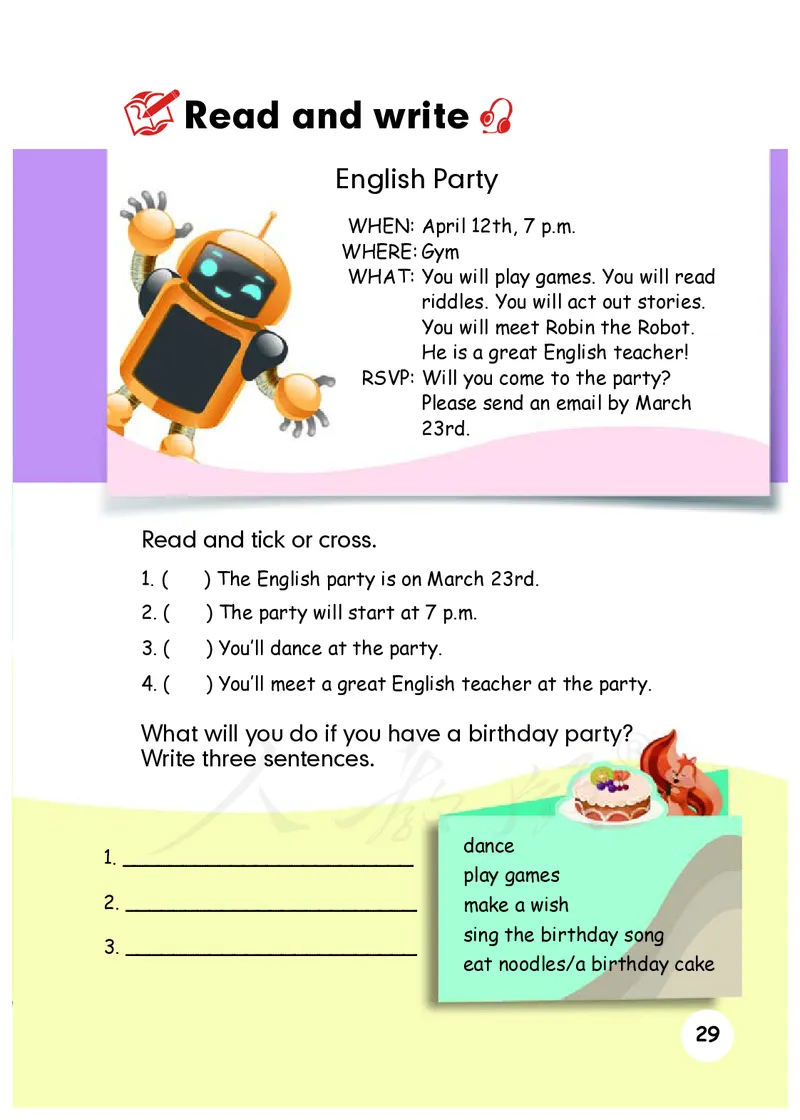 Read and write
English Party
WHEN: April 12th, 7 p.m.
WHERE: Gym
WHAT: You will play games. You will read
riddles. You will act out stories.
You will meet Robin the Robot.
He is a great English teacher!
RSVP: Will you come to the party?
Please send an email by March
23rd.
Read and tick or cross.
1. (      ) The English party is on March 23rd.
2. (      ) The party will start at 7 p.m.
3. (      ) You'll dance at the party.
4. (      ) You'll meet a great English teacher at the party.
What will you do if you have a birthday party?
Write three sentences.
人教版®
1. ________________________
2. ________________________
3. ________________________
dance
play games
make a wish
sing the birthday song
eat noodles/a birthday cake
29